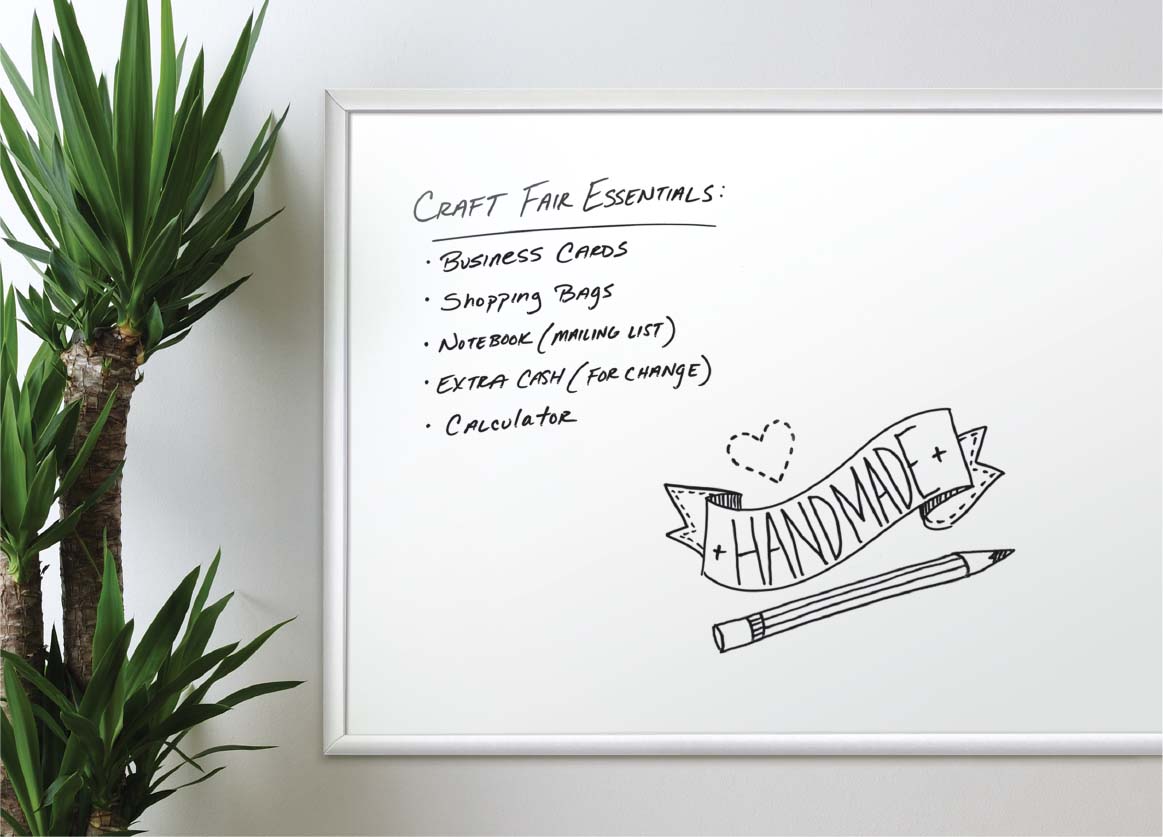 CRAFT FAIR ESSENTIALS:
• BUSINESS CARDS
• Shopping BAgS
• NOTEBOOK (MAILING LIST)
• EXTRA CASH (FOR CHANGE)
• CALCulaTOR
+ HANDMADE +